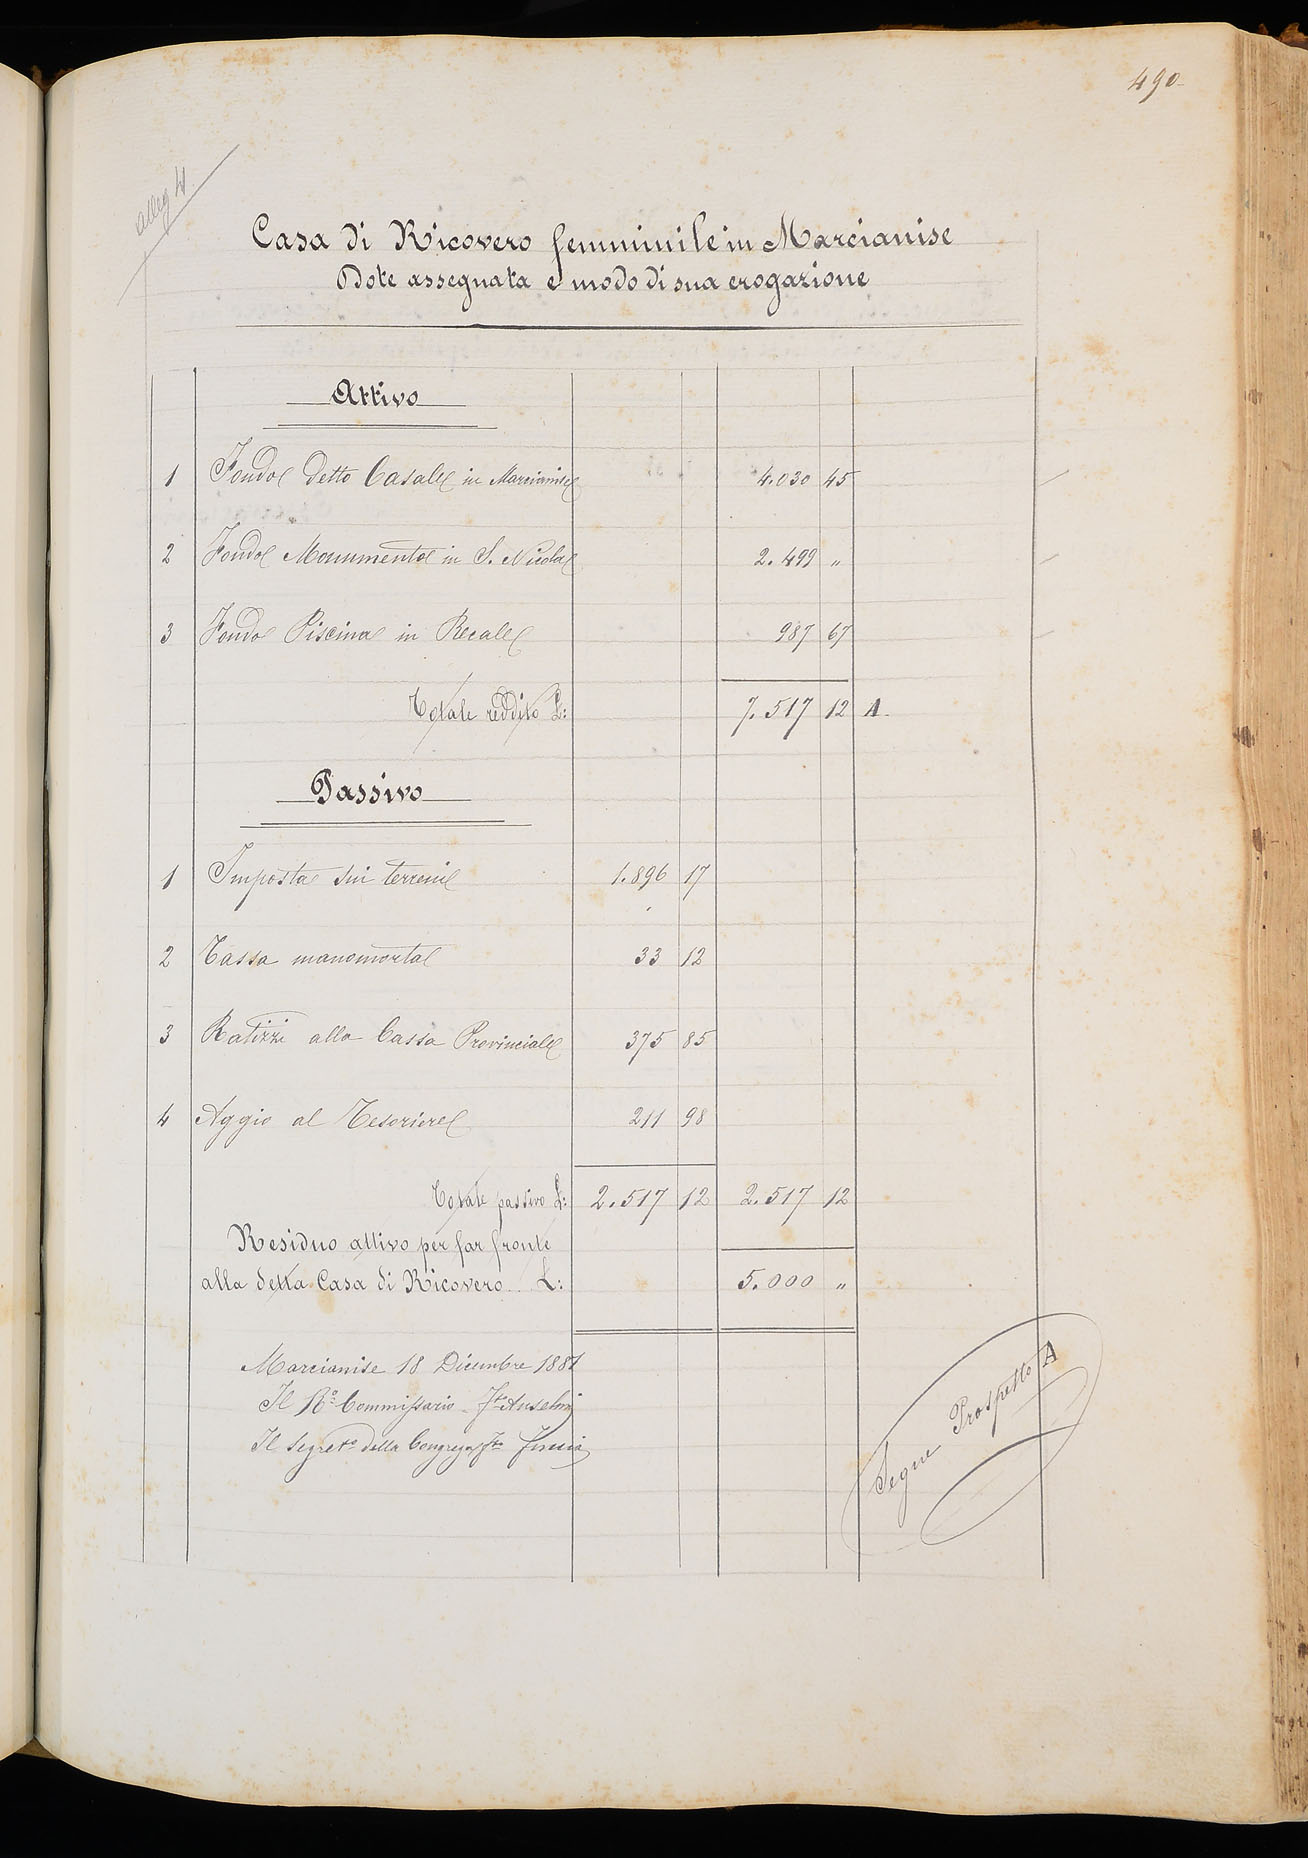 490
alleg 4
Casa di Ricovero femminile in Marcianise
Dote assegnata e modo di sua erogazione
Attivo
1 Fondo detto Casale in Marcianise 4.030 45
2 Fondo Monumento in S. Nicola 2.499 "
3 Fondo Piscina in Recale 987 67
Totale reddito L: 7.517 12 A.
Passivo
1 Imposta sui terreni 1.896 17
2 Tassa manomorta 33 12
3 Ratizzi alla Cassa Provinciale 375 85
4 Aggio al Tesoriere 211 98
Totale passivo L: 2.517 12 2.517 12
Residuo attivo per far fronte
alla detta Casa di Ricovero .. L: 5.000 "
Marcianise 18 Dicembre 1881
Il R.º Commissario - Fto
Il Segretº della Congregª Fto
Segue Prospetto A